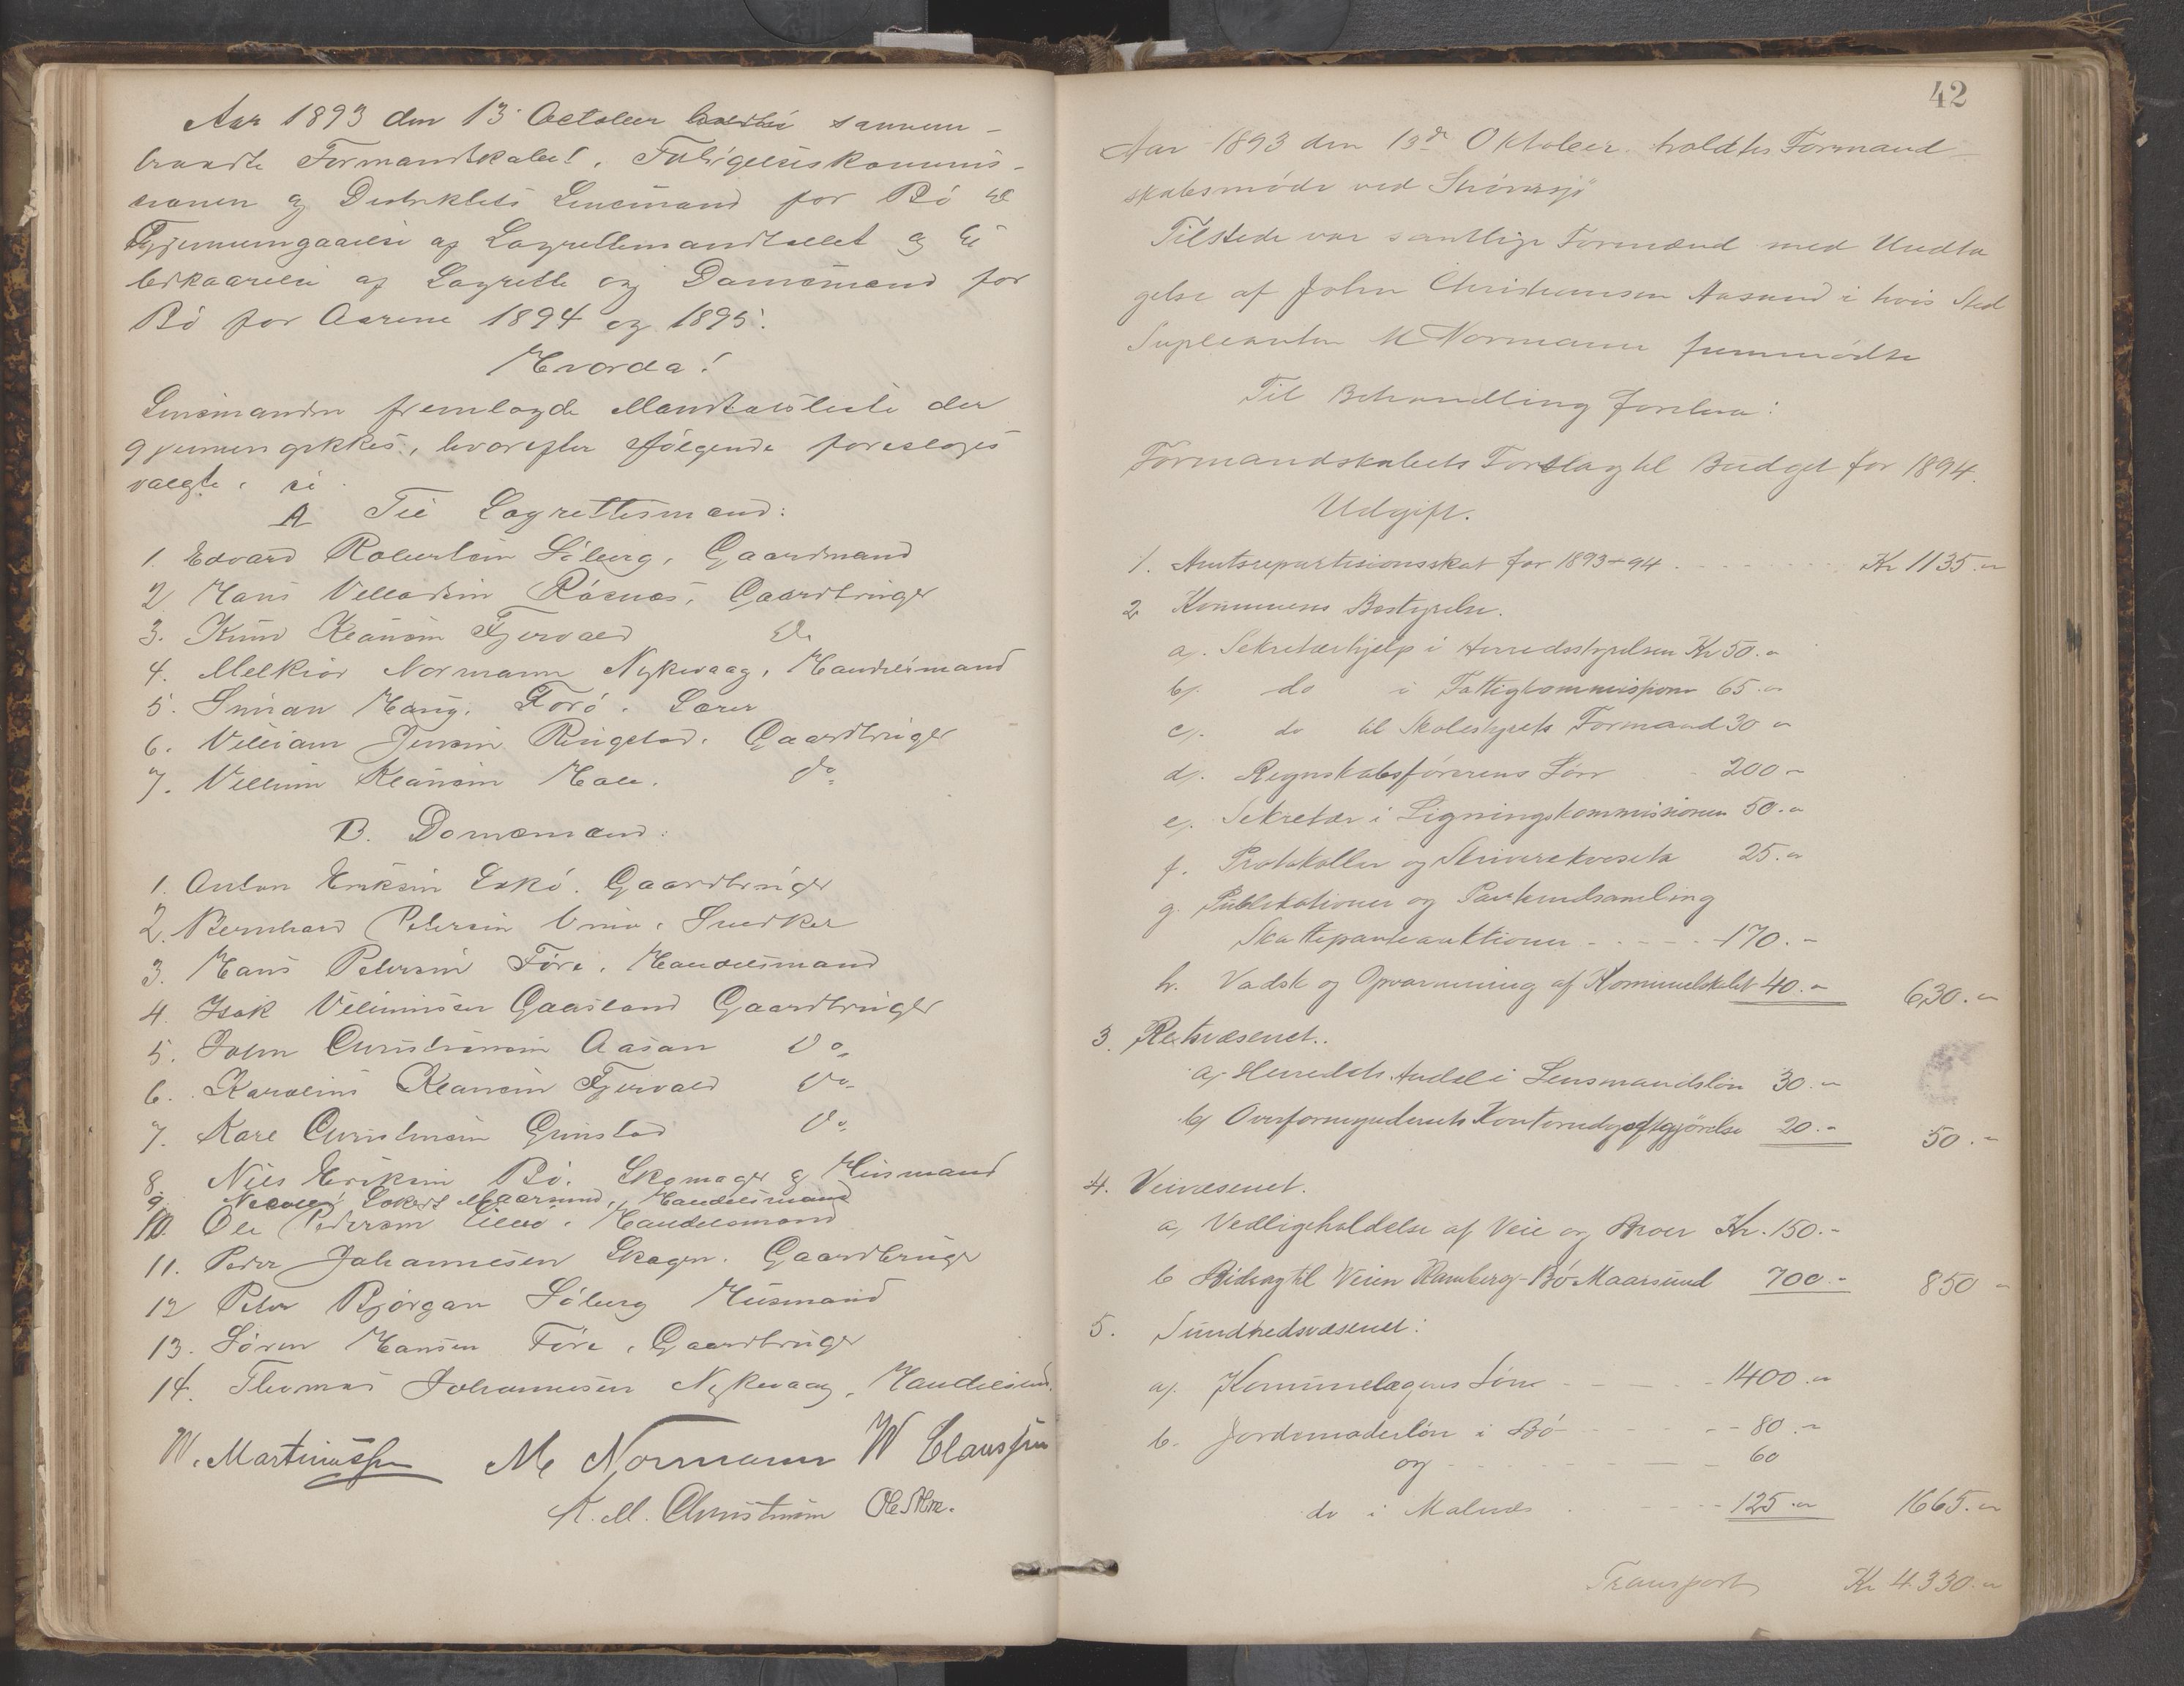 Aar 1893 den 13 October sammen-
traadte Formandskabet, Tilsigelseskommis-
sionen og Distriktets Lensmand for Bö til
Gjennemgaaelse af Lagrettemandtallet og til
Udkaarelse af Lagrette og Domsmænd for
Bö for Aarene 1894 og 1895.
Hvorda!
Lensmanden fremlagde Mandtalsliste der
gjennemgikkes, hvorefter følgende foresloges
valgte,
A Til Lagrettesmænd:
1. Edvard Robertsen Söberg, Gaardmand
2 Hans Villadsen Röснæs, Gaardbruger
3. Knud Klausen Fjervold Do
4. Melkior Normann Nykvaag, Handelsmand
5. Simon Haug, Forö, Lærer
6. Villiam Jensen Ringstad, Gaardbruger
7. Villum Klausen Hole. Do
B. Domsmænd:
1. Anton Eriksen Eskö. Gaardbruger
2. Bernhard Petersen Vinie, Snedker
3. Hans Petersen Före, Handelsmand
4. Isak Villumsen Gaasland Gaardbruger
5. John Christiansen Aasan Do
6. Karolius Klausen Fjervold Do
7. Kare Christensen Grimstad Do
8. Nils Eriksen Bö. Skomager & Husmand
9. Lockert Maarsund, Handelsmand
10. Ole Pedersen, Handelsmand
11. Peder Johannesen Skagen. Gaardbruger
12 Peter Bjørgan Söberg Husmand
13. Sören Hansen Före, Gaardbruger
14. Thomas Johannesen Nykvaag, Handelsmd.
W. Martinussen M Normann W Claussen
K. M. Christensen
42
Aar 1893 den 13de Oktober holdtes Formand-
skabsmöde ved Steinesjö
Tilstede var samtlige Formænd med Undta
gelse af John Christiansen Aasand i hvis Sted
Supleanten M Normann fremmödte
Til Behandling forelaa:
Formandskabets Forslag til Budget for 1894.
Udgift.
1. Amtsrepartisionsskat for 1893-94 . . . . Kr 1135.-
2 Kommunens Bestyrelse.
a). Sekretærhjelp i Herredsstyrelsen Kr 50.-
b). do i Fattigkommissionen 65.-
c). do til Skolestyrets Formand 30 -
d). Regnskabsförerens Lön - 200 -
e). Sekretær i Ligningskommissionen 50.-
f. Protokoller og Skriverekvisita 25.-
g. Publikationer og Pantendsamling
Skattepanteauktioner - - - - 170.-
h. Vadsk og Opvarmning af Kommunelokalet 40.- 630.-
3. Retsvæsenet..
a) Herredets Andel i Lensmandslön 30.-
b) Overformynderiets Kontorudgiftgjörelse 20.- 50.-
4. Veivæsenet.
a, Vedligeholdelse af Veie og Broer Kr. 150.-
b Bidrag til Veien Ramberg-Bö-Maarsund 700.- 850 -
5. Sundhedsvæsenet:
a). Kommunelægens Lön - - - 1400.-
b. Jordemoderlön i Bö - - - - 80.-
og - - - - - 60
do i Malnæs . - - - 125.- 1665.-
Transport Kr 4330.-